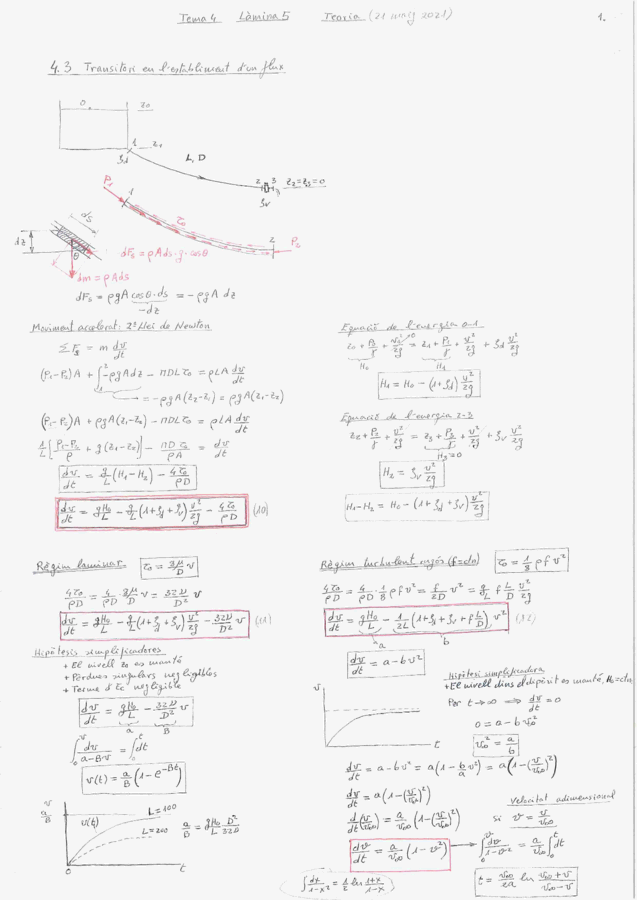 Tema 4 Làmina 5 Teoria (21 maig 2021)
1.
4.3 Transitori en l'establiment d'un flux
0 z0
1 z1
ξd
L, D
2 3 z2=z3=0
ξv
P1
1
τ0
2
P2
ds
dz
θ
dFs = ρAds·g·cosθ
dm = ρAds
dFs = ρgA cosθ·ds = -ρgA dz
-dz
Moviment accelerat: 2ª Llei de Newton
ΣFs = m dv/dt
(P1-P2)A + ∫₁² -ρgAdz - πDLτ0 = ρLA dv/dt
= -ρgA(z2-z1) = ρgA(z1-z2)
(P1-P2)A + ρgA(z1-z2) - πDLτ0 = ρLA dv/dt
1/L [P1-P2/ρ + g(z1-z2)] - πDτ0/ρA = dv/dt
dv/dt = g/L (H1-H2) - 4τ0/ρD
dv/dt = gH0/L - g/L (1+ξd+ξv) v²/2g - 4τ0/ρD (10)
Equació de l'energia 0-1
z0 + P0/γ + v0²/2g = z1 + P1/γ + v²/2g + ξd v²/2g
0
H0 H1
H1 = H0 - (1+ξd) v²/2g
Equació de l'energia 2-3
z2 + P2/γ + v²/2g = z3 + P3/γ + v²/2g + ξv v²/2g
H3=0
H2 = ξv v²/2g
H1-H2 = H0 - (1+ξd+ξv) v²/2g
Règim laminar. τ0 = 8μ/D v
4τ0/ρD = 4/ρD 8μ/D v = 32ν/D² v
dv/dt = gH0/L - g/L (1+ξd+ξv) v²/2g - 32ν/D² v (11)
Hipòtesis simplificadores
+ El nivell z0 es manté
+ Pèrdues singulars negligibles
+ Terme d'Ec negligible
dv/dt = gH0/L - 32ν/D² v
a B
∫₀ᵛ dv/a-Bv = ∫₀ᵗ dt
v(t) = a/B (1-e^-Bt)
v
a/B
v(t)
L=100
L=200
a/B = gH0/L D²/32ν
0
t
Règim turbulent rugós (f=cte) τ0 = 1/8 ρ f v²
4τ0/ρD = 4/ρD · 1/8 ρfv² = f/2D v² = g/L f L/D v²/2g
dv/dt = gH0/L - 1/2L (1+ξd+ξv+f L/D) v² (12)
a b
dv/dt = a-bv²
Hipòtesi simplificadora
+El nivell dins el dipòsit es manté, H0=cte
Per t→∞ ⟹ dv/dt = 0
0 = a-bv∞²
v∞² = a/b
v
t
dv/dt = a-bv² = a(1 - b/a v²) = a(1-(v/v∞)²)
dv/dt = a(1-(v/v∞)²)
d/dt (v/v∞) = a/v∞ (1-(v/v∞)²)
Velocitat adimensional
si 𝓋 = v/v∞
d𝓋/dt = a/v∞ (1-𝓋²)
∫₀ d𝓋/1-𝓋² = a/v∞ ∫₀ᵗ dt
∫dx/1-x² = 1/2 ln 1+x/1-x
t = v∞/2a ln v∞+v/v∞-v